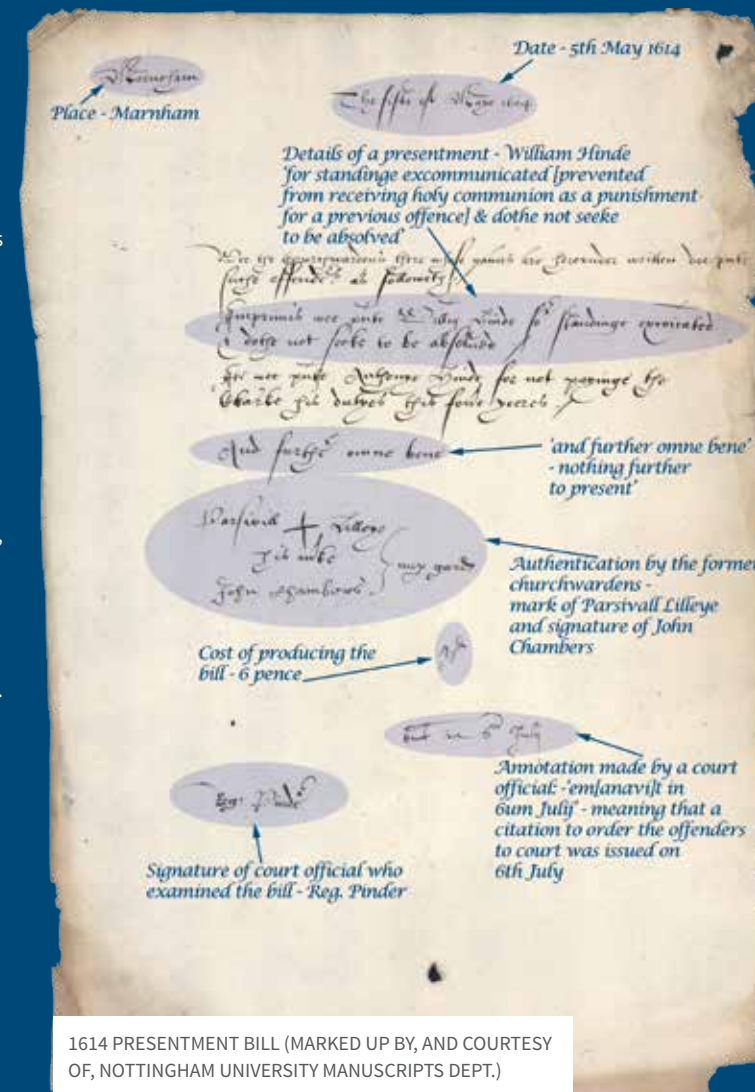 Marnham
Date - 5th May 1614
Place - Marnham
The fifte of Maye 1614
Details of a presentment - William Hinde
'for standinge excommunicated [prevented
from receiving holy communion as a punishment
for a previous offence] & dothe not seeke
to be absolved'
Wee the churchwardens there whose names are hereunder written doe
suche offenders as followethe
Imprimis wee Hinde for standinge
& dothe not seeke to be absolved
wee Anthonye Hinde for not payinge the
Clarke his dutyes this foure yeeres
And further omne bene
'and further omne bene'
- nothing further
to present'
Parsivall Lilleye
his mke
John Chambers
Authentication by the former
churchwardens -
mark of Parsivall Lilleye
and signature of John
Chambers
Cost of producing the
bill - 6 pence
emt in 6 Julij
Annotation made by a court
official: -'em[anavi]t in
6um Julij' - meaning that a
citation to order the offenders
to court was issued on
6th July
Reg. Pinder
Signature of court official who
examined the bill - Reg. Pinder
1614 PRESENTMENT BILL (MARKED UP BY, AND COURTESY
OF, NOTTINGHAM UNIVERSITY MANUSCRIPTS DEPT.)